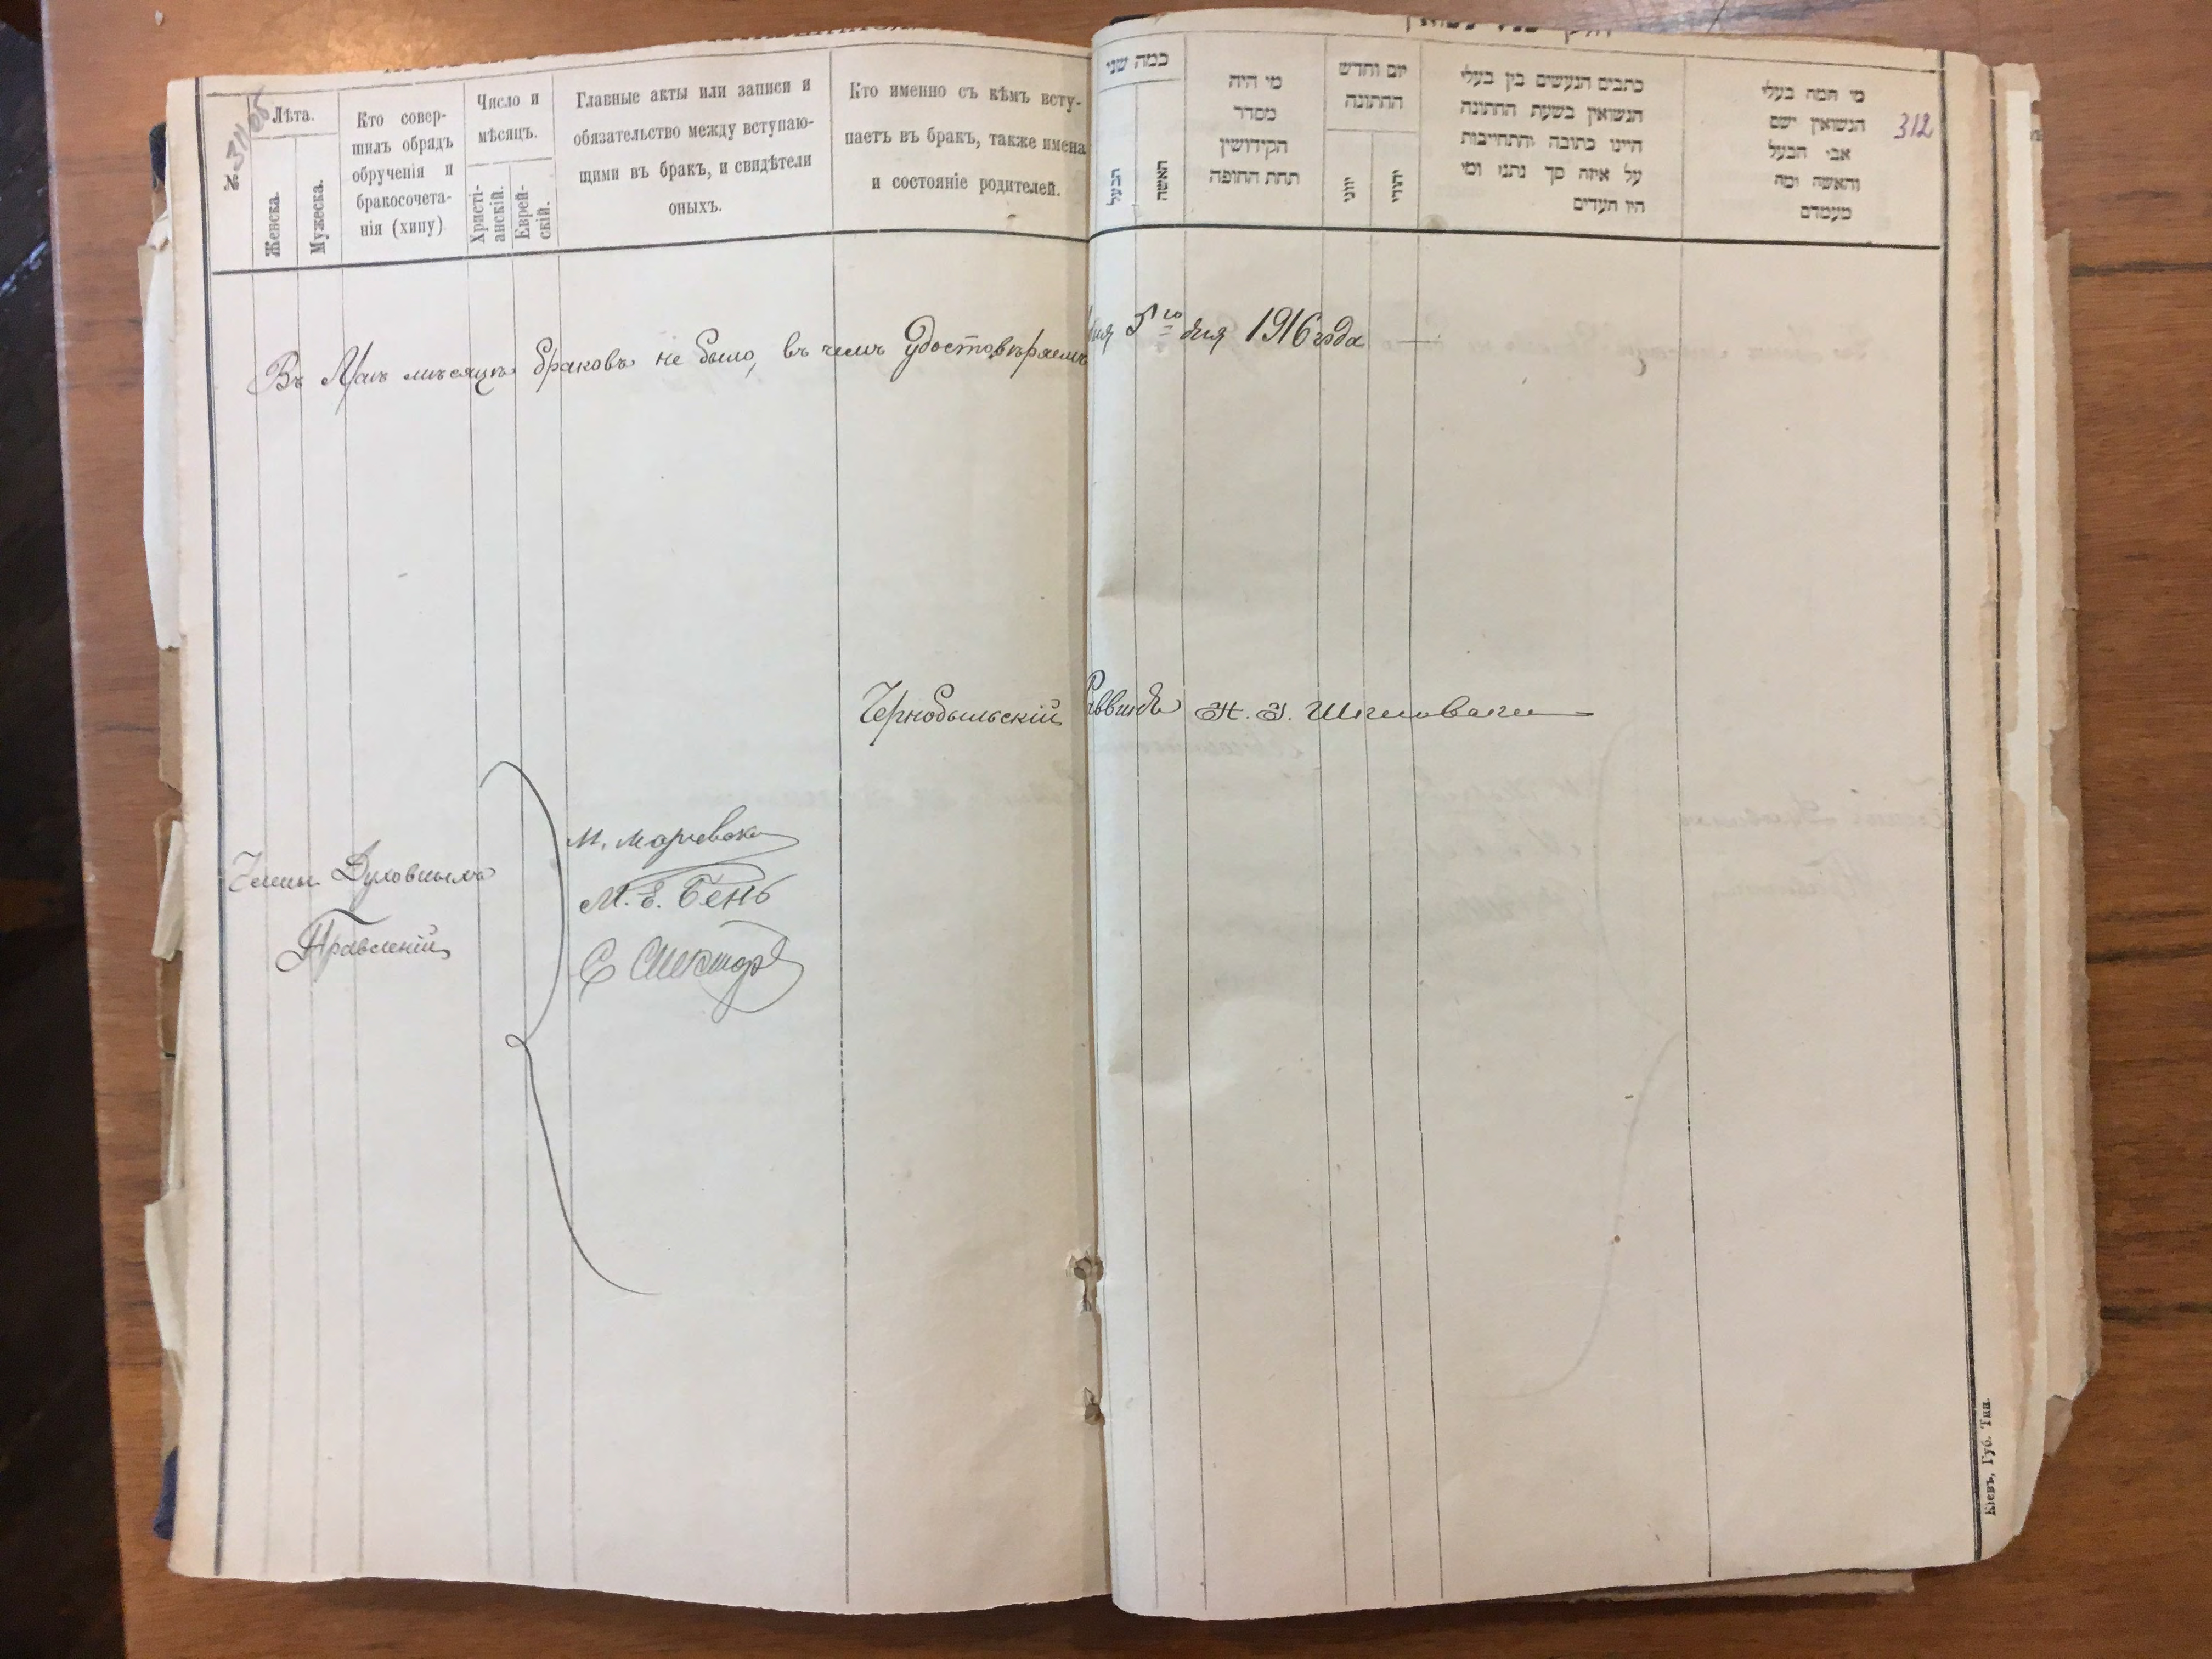 311об
№
Лѣта.
Женска.
Мужеска.
Кто совер-
шилъ обрядъ
обрученія и
бракосочета-
нія (хипу)
Число и
мѣсяцъ.
Христі-
анскій.
Еврей-
скій.
Главные акты или записи и
обязательство между вступаю-
щими въ бракъ, и свидѣтели
оныхъ.
Кто именно съ кѣмъ всту-
паетъ въ бракъ, также имена
и состояніе родителей.
כמה שני
הבעל
האשה
מי היה
מסדר
הקידושין
תחת החופה
יום וחדש
החתונה
יווני
יהודי
כתבים הנעשים בין בעלי
הנשואין בשעת החתונה
היינו כתובה והתחייבות
על איזה סך נתני ומי
היו העדים
מי המה בעלי
הנשואין ושם
אבי הבעל
והאשה ומה
מעמדם
312
Въ Маѣ мѣсяцѣ браковъ не было, въ чемъ Удостовѣряемъ 5го дня 1916 года
Чернобыльскій Раввинъ
Члены Духовныхъ
Правленій
М. Е. Бень
С Спекторъ
Кіевъ, Губ. Тип.